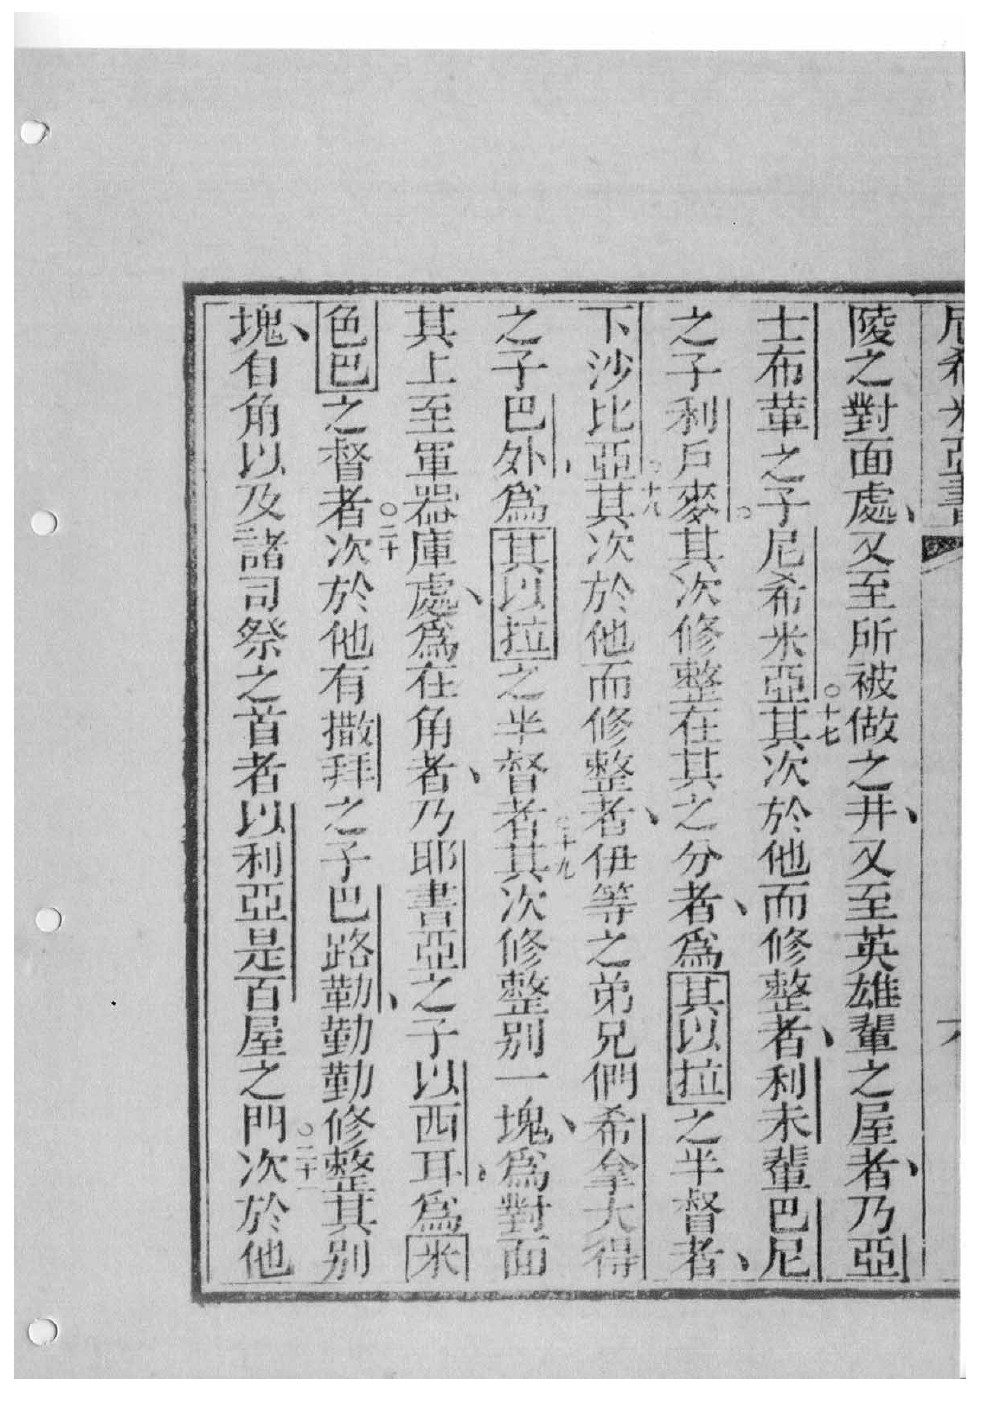 尼希米亞書 六
陵之對面處、又至所被做之井、又至英雄輩之屋者、乃亞
士布葷之子尼希米亞○十七其次於他而修整者、利未輩巴尼
之子利戶麥。其次修整在其之分者、爲其以拉之半督者、
下沙比亞○十八其次於他而修整者、伊等之弟兄們希拿大得
之子巴外、爲其以拉之半督者○十九其次修整別一塊、爲對面
其上至軍器庫處、爲在角者、乃耶書亞之子以西耳、爲米
色巴之督者○二十次於他有撒拜之子巴路勤、勤勤修整其別
塊、自角以及諸司祭之首者以利亞是百屋之門○二十一次於他